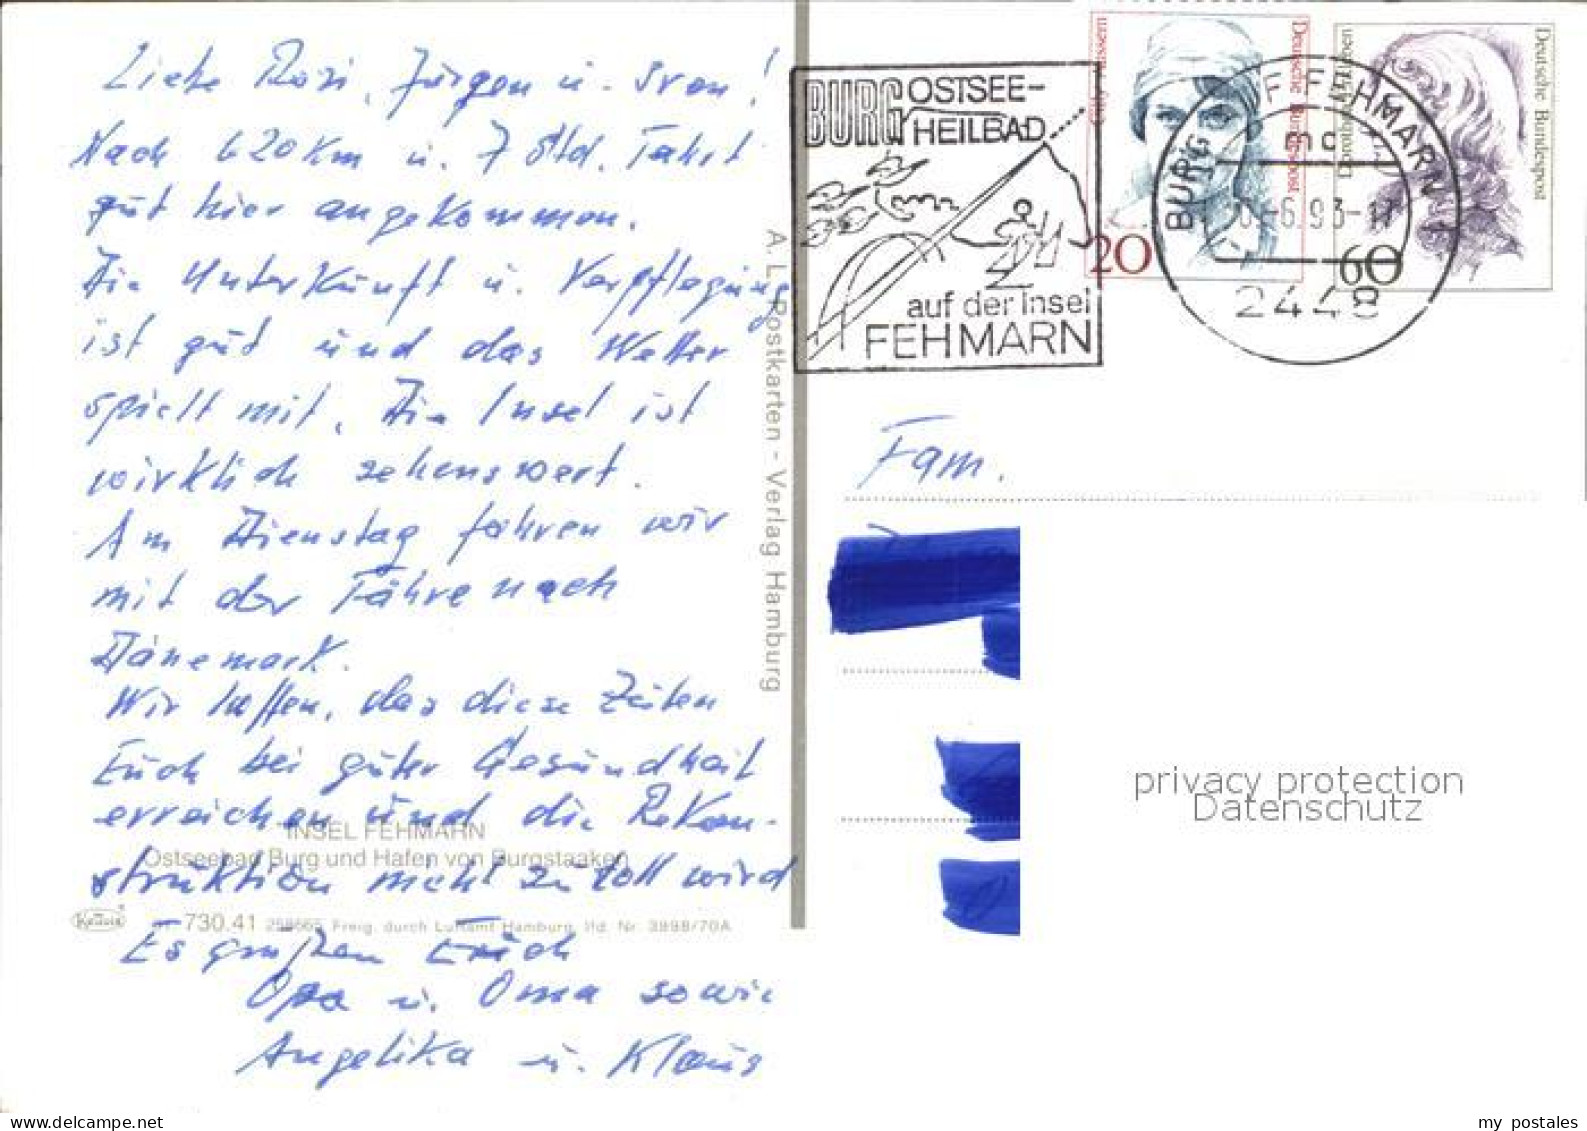 Liebe Rosi, Jürgen u. Sven!
Nach 620 Km u. 7 Std. Fahrt
gut hier angekommen.
Die Unterkunft u. Verpflegung
ist gut und das Wetter
spielt mit. Die Insel ist
wirklich sehenswert.
Am Dienstag fahren wir
mit der Fähre nach
Dänemark.
Wir hoffen, das diese Zeilen
Euch bei guter Gesundheit
erreichen und die Rekon-
struktion nicht zu toll wird
Es grüßen Euch
Opa u. Oma sowie
Angelika u. Klaus
INSEL FEHMARN
Ostseebad Burg und Hafen von Burgstaaken
Krüger
730.41 258665 Freig. durch Luftamt Hamburg, lfd. Nr. 3998/70A
A. L. Postkarten - Verlag Hamburg
BURG OSTSEE-
HEILBAD
auf der Insel
FEHMARN
Cilly Aussem
Deutsche Bundespost
20
Deutsche Bundespost
60
BURG A F FEHMARN 1
mc
6.93-17
2448
Fam.
privacy protection
Datenschutz
my postales